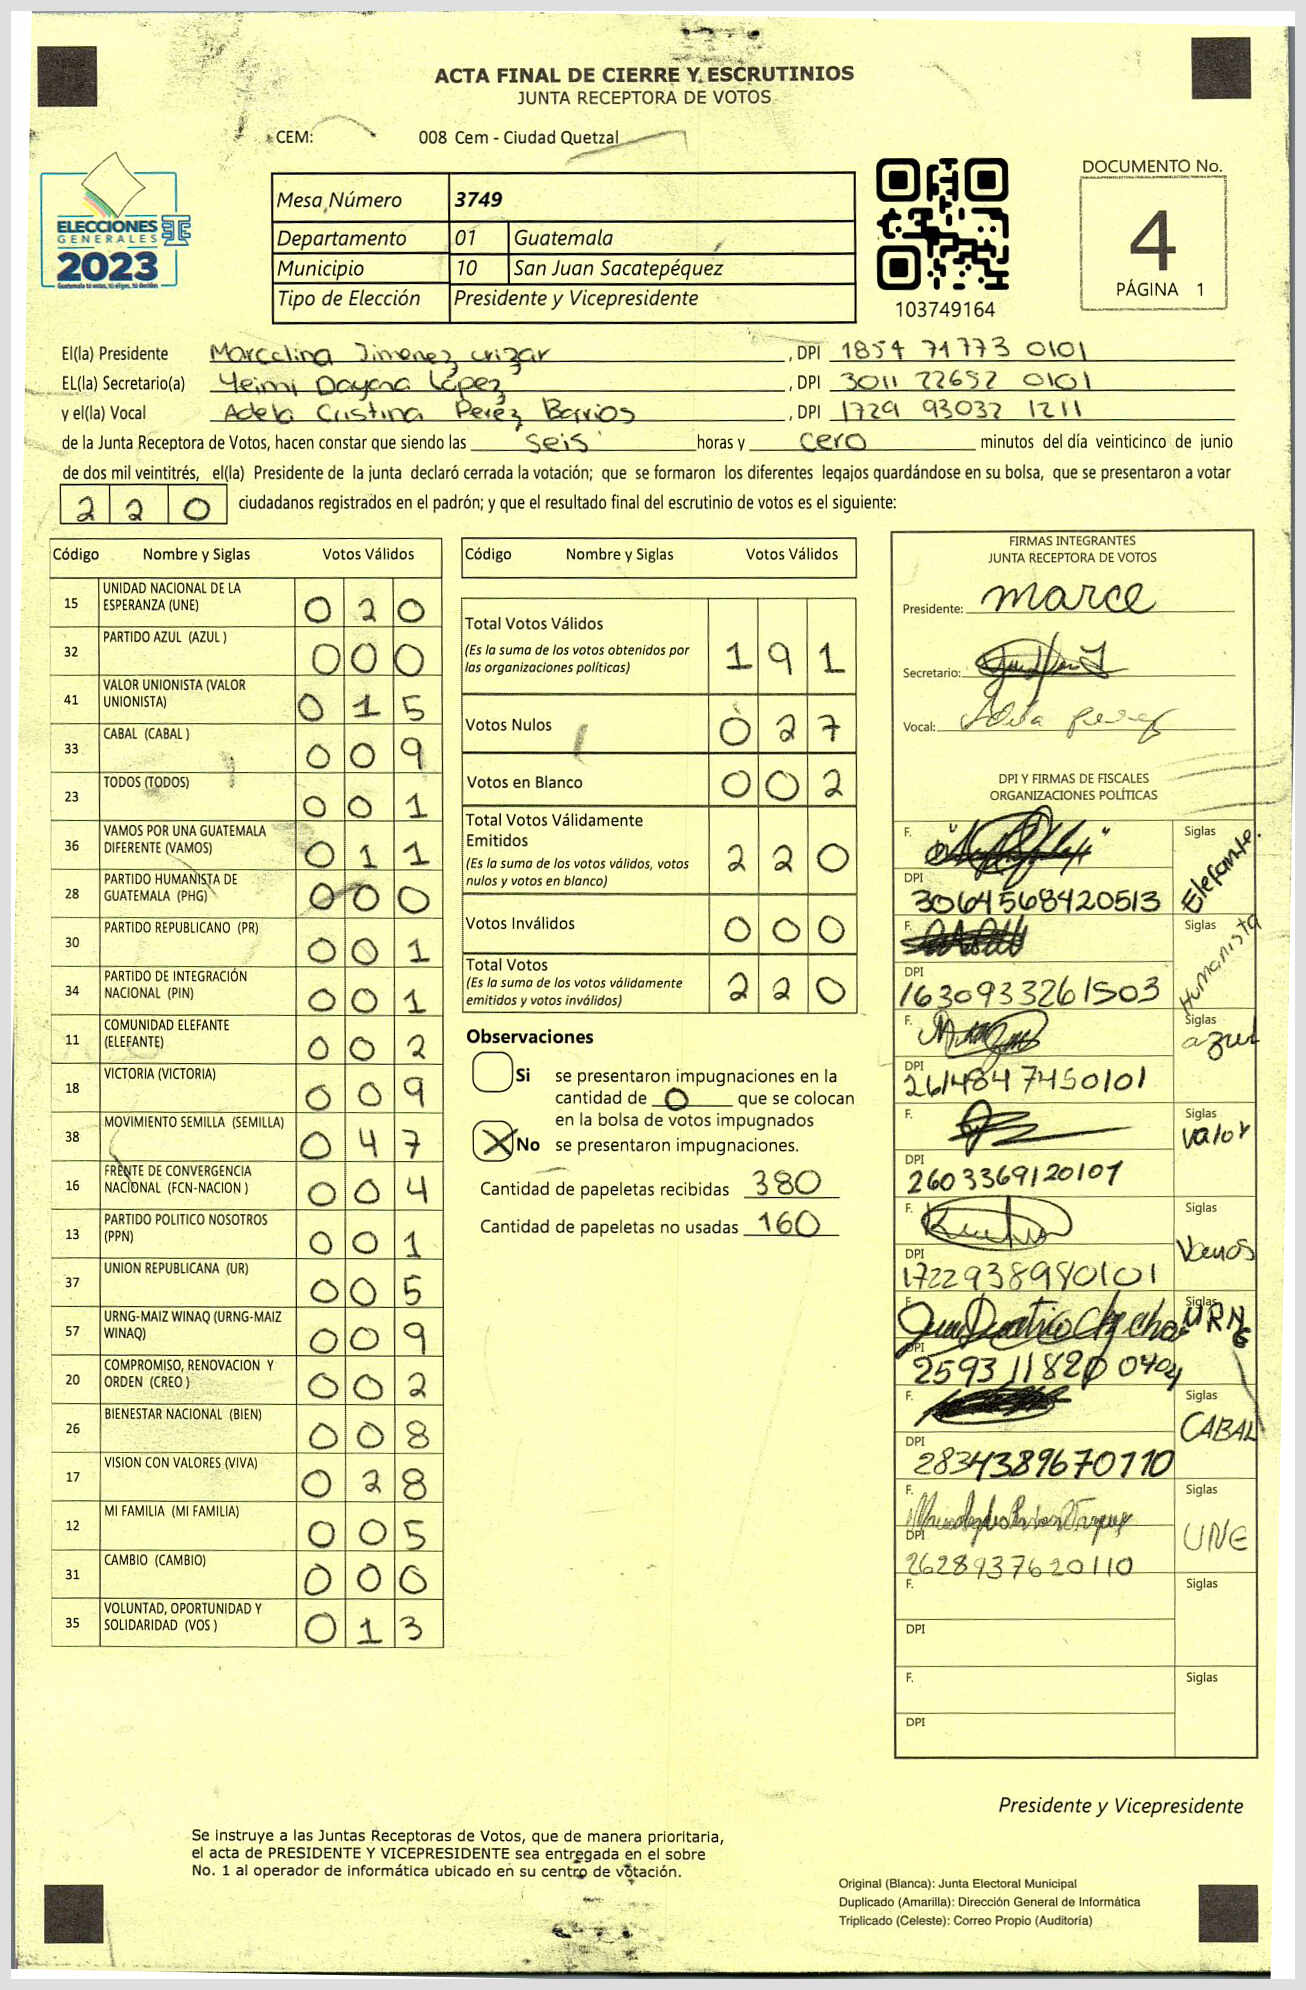 ACTA FINAL DE CIERRE Y ESCRUTINIOS
JUNTA RECEPTORA DE VOTOS
CEM: 008 Cem - Ciudad Quetzal
ELECCIONES
GENERALES
2023
Guatemala tú votas, tú eliges, tú decides
Mesa Número 3749
Departamento 01 Guatemala
Municipio 10 San Juan Sacatepéquez
Tipo de Elección Presidente y Vicepresidente
103749164
DOCUMENTO No.
4
PÁGINA 1
El(la) Presidente Marcelina Jimenez urizar, DPI 1854 71773 0101
EL(la) Secretario(a) Yeimi Dayana López, DPI 3011 22652 0101
y el(la) Vocal Adela Cristina Peréz Barrios, DPI 1729 93037 1211
de la Junta Receptora de Votos, hacen constar que siendo las seis horas y cero minutos del día veinticinco de junio
de dos mil veintitrés, el(la) Presidente de la junta declaró cerrada la votación; que se formaron los diferentes legajos guardándose en su bolsa, que se presentaron a votar
220 ciudadanos registrados en el padrón; y que el resultado final del escrutinio de votos es el siguiente:
Código Nombre y Siglas Votos Válidos
15 UNIDAD NACIONAL DE LA ESPERANZA (UNE) 020
32 PARTIDO AZUL (AZUL ) 000
41 VALOR UNIONISTA (VALOR UNIONISTA) 015
33 CABAL (CABAL ) 009
23 TODOS (TODOS) 001
36 VAMOS POR UNA GUATEMALA DIFERENTE (VAMOS) 011
28 PARTIDO HUMANISTA DE GUATEMALA (PHG) 000
30 PARTIDO REPUBLICANO (PR) 001
34 PARTIDO DE INTEGRACIÓN NACIONAL (PIN) 001
11 COMUNIDAD ELEFANTE (ELEFANTE) 002
18 VICTORIA (VICTORIA) 009
38 MOVIMIENTO SEMILLA (SEMILLA) 047
16 FRENTE DE CONVERGENCIA NACIONAL (FCN-NACION ) 004
13 PARTIDO POLITICO NOSOTROS (PPN) 001
37 UNION REPUBLICANA (UR) 005
57 URNG-MAIZ WINAQ (URNG-MAIZ WINAQ) 009
20 COMPROMISO, RENOVACION Y ORDEN (CREO ) 002
26 BIENESTAR NACIONAL (BIEN) 008
17 VISION CON VALORES (VIVA) 028
12 MI FAMILIA (MI FAMILIA) 005
31 CAMBIO (CAMBIO) 000
35 VOLUNTAD, OPORTUNIDAD Y SOLIDARIDAD (VOS ) 013
Código Nombre y Siglas Votos Válidos
Total Votos Válidos 191
(Es la suma de los votos obtenidos por
las organizaciones políticas)
Votos Nulos 027
Votos en Blanco 002
Total Votos Válidamente
Emitidos 220
(Es la suma de los votos válidos, votos
nulos y votos en blanco)
Votos Inválidos 000
Total Votos 220
(Es la suma de los votos válidamente
emitidos y votos inválidos)
Observaciones
Si se presentaron impugnaciones en la
cantidad de 0 que se colocan
en la bolsa de votos impugnados
X No se presentaron impugnaciones.
Cantidad de papeletas recibidas 380
Cantidad de papeletas no usadas 160
FIRMAS INTEGRANTES
JUNTA RECEPTORA DE VOTOS
Presidente: marce
Secretario:
Vocal: Adela perez
DPI Y FIRMAS DE FISCALES
ORGANIZACIONES POLÍTICAS
F. Siglas Elefante.
DPI 3064568420513
F. Siglas Humanista
DPI 1630933261503
F. Siglas azul
DPI 2614847450101
F. Siglas valor
DPI 2603369120101
F. Siglas Vamos
DPI 1722938980101
F. Siglas URNG
DPI 2593 11820 0404
F. Siglas CABAL
DPI 2834389670110
F. Siglas UNE
DPI 2628937620110
F. Siglas
DPI
F. Siglas
DPI
Presidente y Vicepresidente
Se instruye a las Juntas Receptoras de Votos, que de manera prioritaria,
el acta de PRESIDENTE Y VICEPRESIDENTE sea entregada en el sobre
No. 1 al operador de informática ubicado en su centro de votación.
Original (Blanca): Junta Electoral Municipal
Duplicado (Amarilla): Dirección General de Informática
Triplicado (Celeste): Correo Propio (Auditoría)